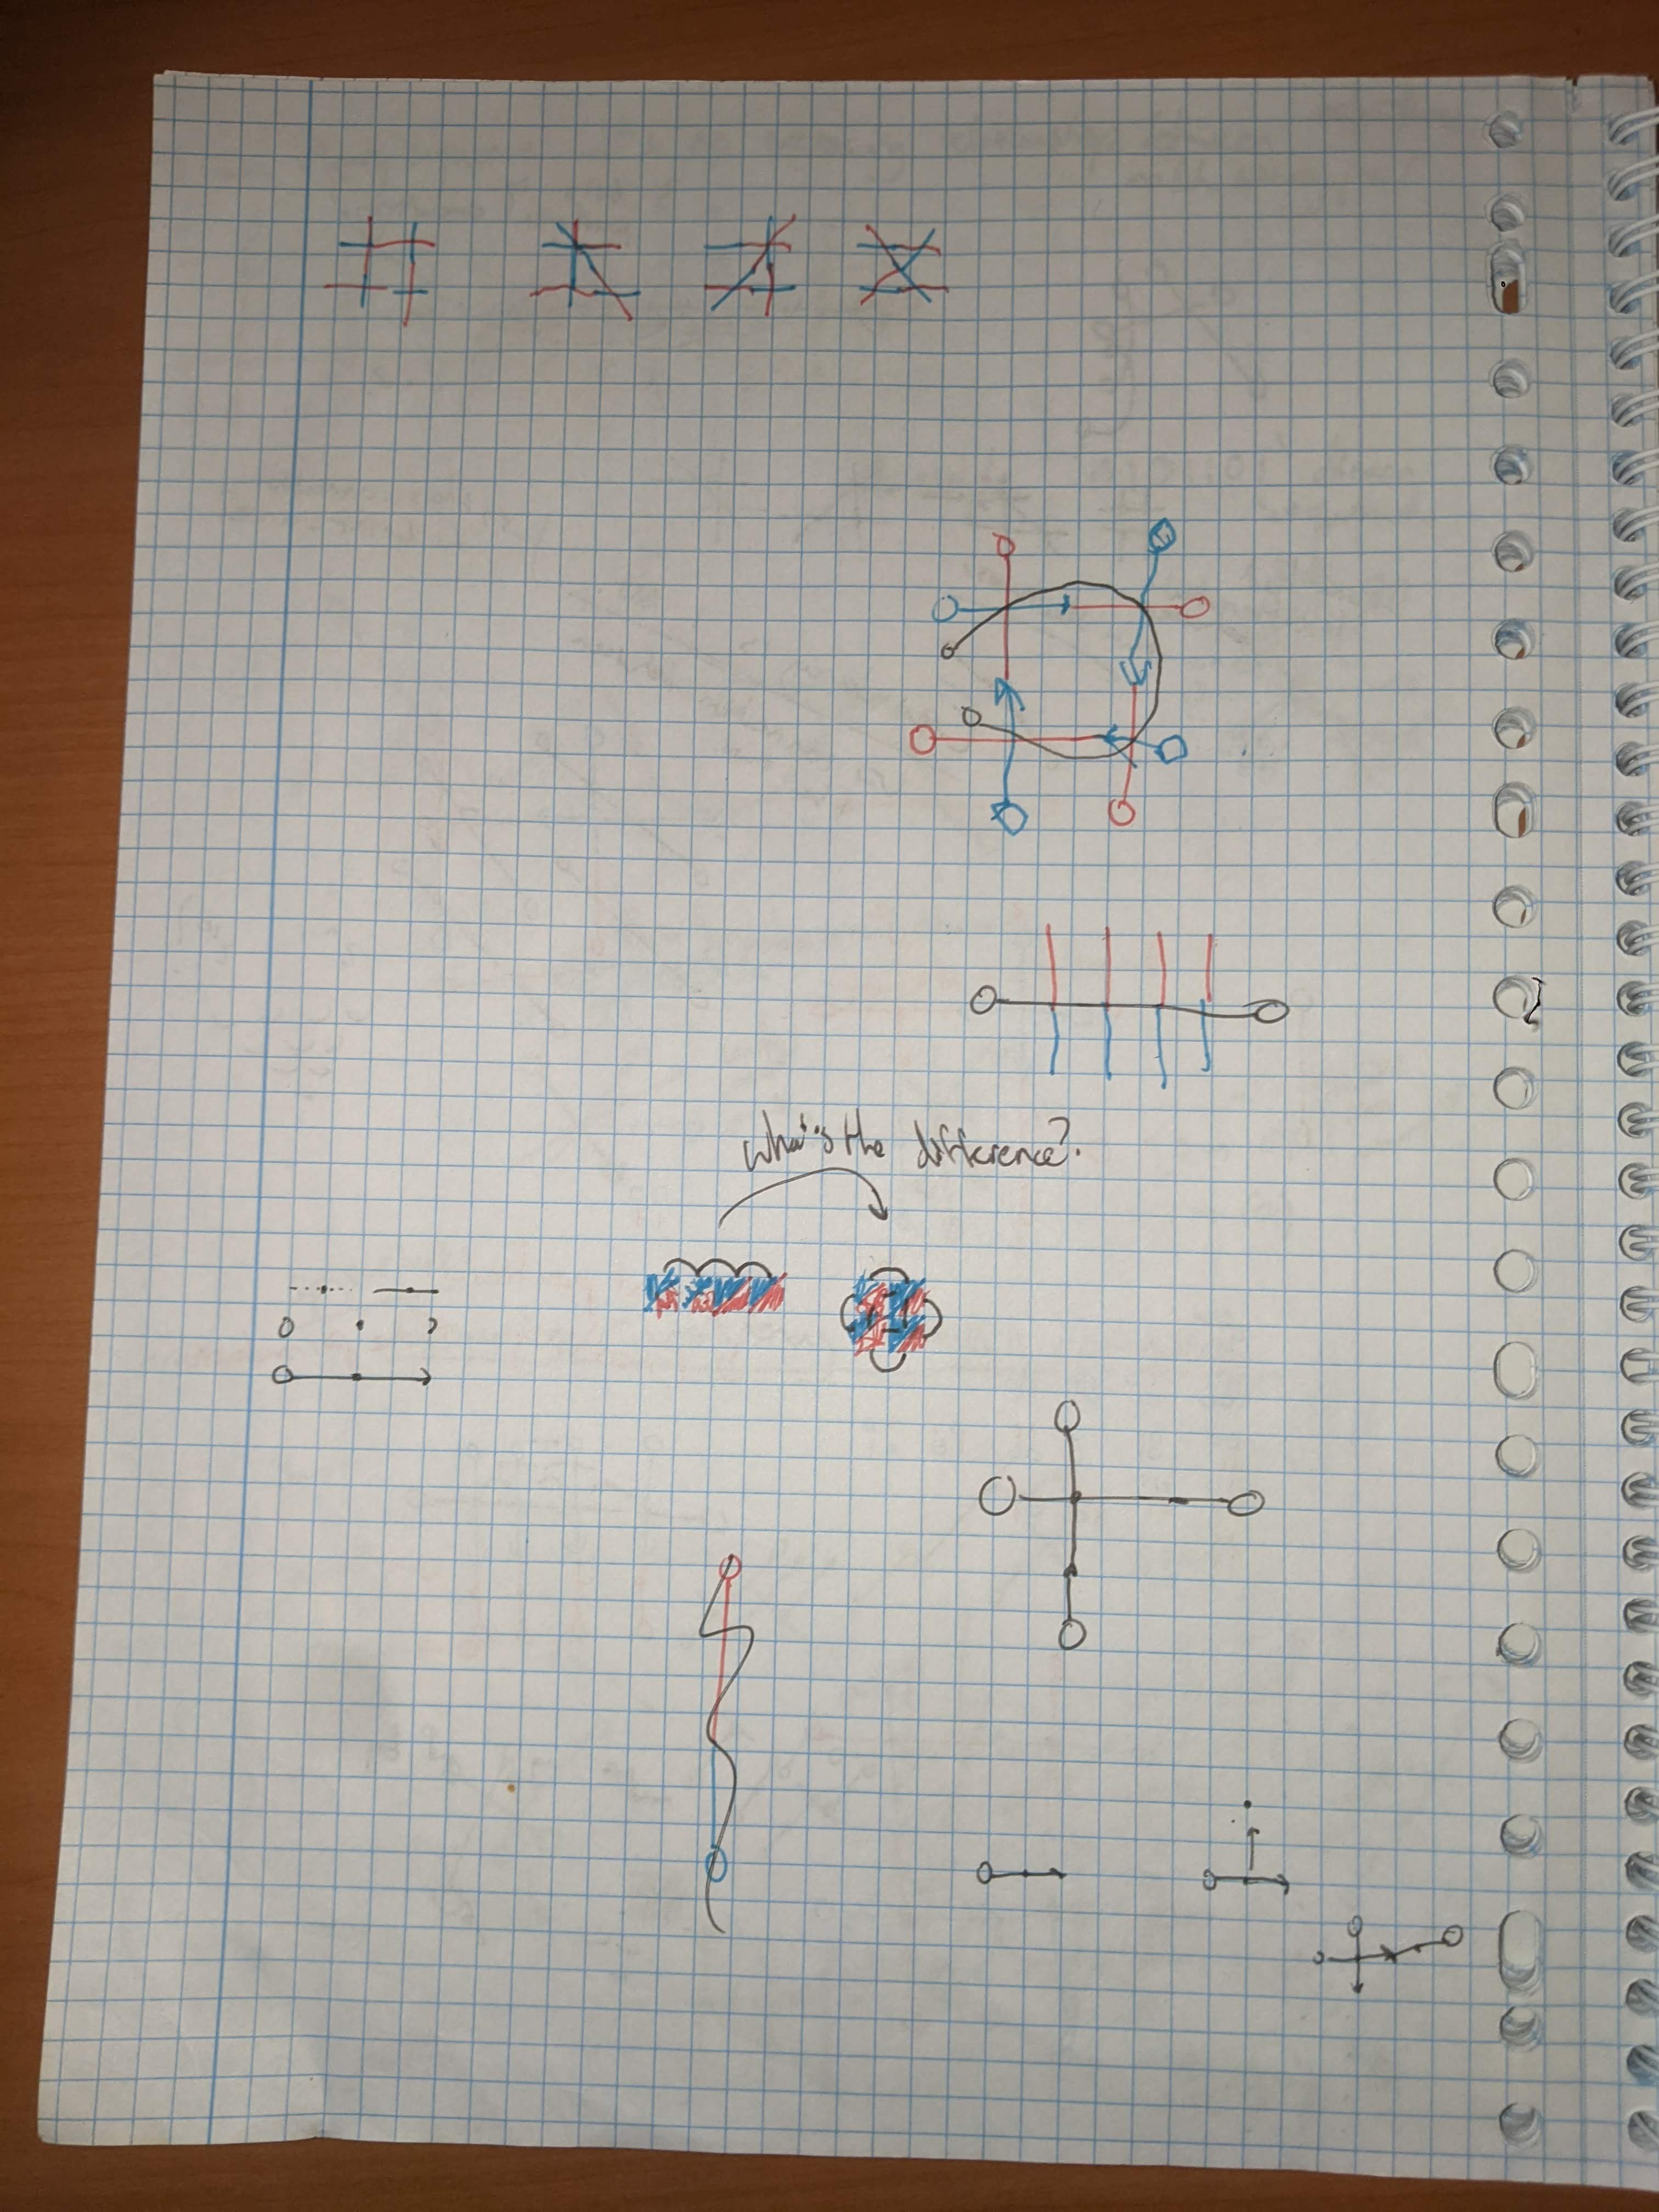 What's the difference?